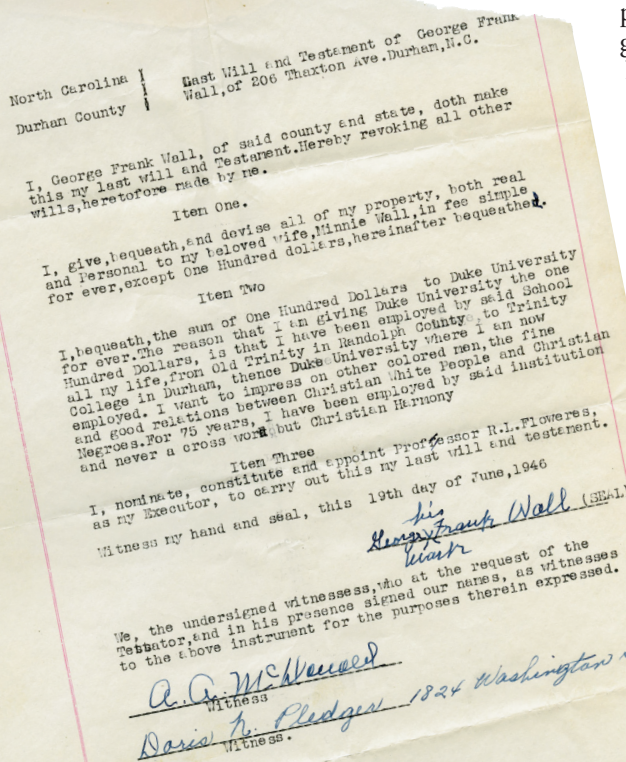 p
g
North Carolina
Durham County
Last Will and Testament of George Frank
Wall,of 206 Thaxton Ave.Durham,N.C.
I, George Frank Wall, of said county and state, doth make
this my last will and Testament.Hereby revoking all other
wills,heretofore made by me.
Item One.
I, give,bequeath,and devise all of my property, both real
and Personal to my beloved wife,Minnie Wall,in fee simple
for ever,except One Hundred dollars,hereinafter bequeathed.
Item Two
I,bequeath,the sum of One Hundred Dollars to Duke University
for ever.The reason that I am giving Duke University the one
Hundred Dollars, is that I have been employed by said School
all my life,from Old Trinity in Randolph County, to Trinity
College in Durham, thence Duke University where I am now
employed. I want to impress on other colored men,the fine
and good relations between Christian White People and Christian
Negroes.For 75 years, I have been employed by said institution
and never a cross word but Christian Harmony
Item Three
I, nominate, constitute and appoint Proffessor R.L.Floweres,
as my Executor, to carry out this my last will and testament.
Witness my hand and seal, this 19th day of June,1946
his
George X Frank Wall (SEAL)
mark
We, the undersigned witnessess,who at the request of the
Testator,and in his presence signed our names, as witnesses
to the above instrument for the purposes therein expressed.
A. A. McDonald
Witness
Doris N. Pledger 1824 Washington
Witness.